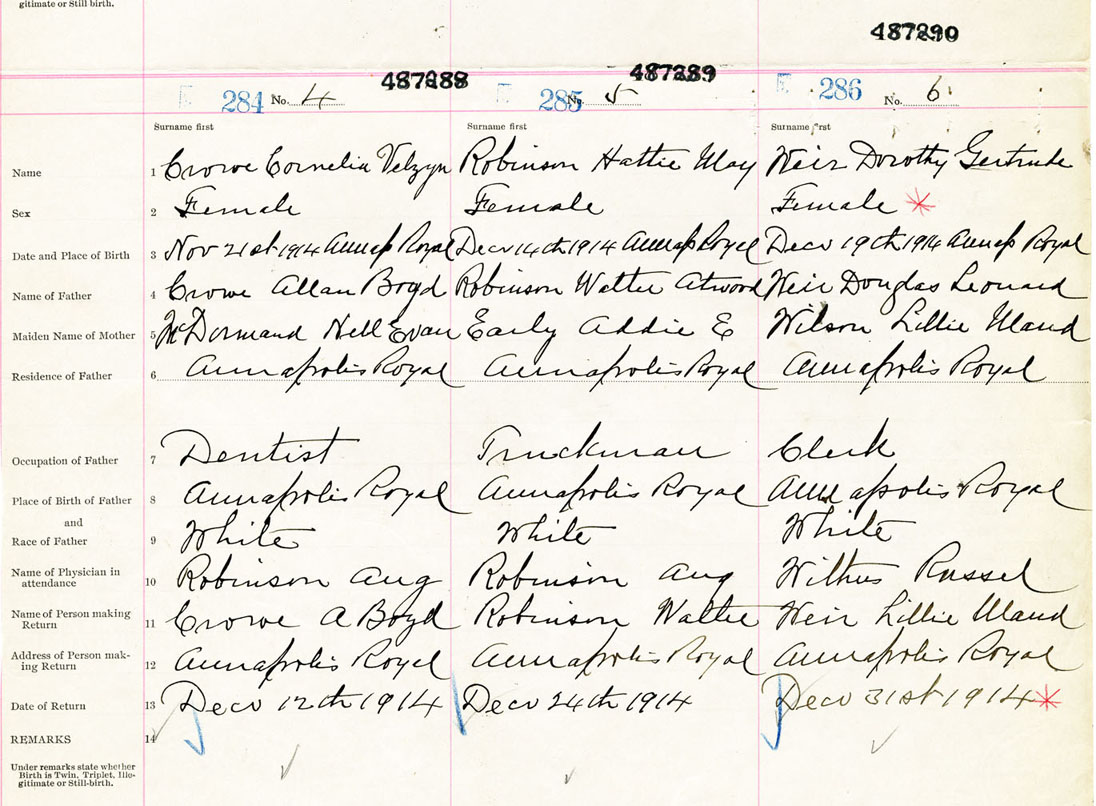 gitimate or Still birth.
487288 487289 487290
284 No. 4 285 No. 5 286 No. 6
Surname first Surname first Surname first
Name 1 Crowe Cornelia Velzyn Robinson Hattie May Weir Dorothy Gertrude
Sex 2 Female Female Female *
Date and Place of Birth 3 Nov 21st 1914 Annap Royal Decr 14th 1914 Annap Royal Decr 19th 1914 Annap Royal
Name of Father 4 Crowe Allan Boyd Robinson Walter Atwood Weir Douglas Leonard
Maiden Name of Mother 5 McDormand Nell Evan Early Addie E Wilson Lillie Maud
Residence of Father 6 Annapolis Royal Annapolis Royal Annapolis Royal
Occupation of Father 7 Dentist Truckman Clerk
Place of Birth of Father 8 Annapolis Royal Annapolis Royal Annapolis Royal
and
Race of Father 9 White White White
Name of Physician in
attendance 10 Robinson Aug Robinson Aug Russel
Name of Person making
Return 11 Crowe A Boyd Robinson Walter Weir Lillie Maud
Address of Person mak-
ing Return 12 Annapolis Royal Annapolis Royal Annapolis Royal
Date of Return 13 Decr 12th 1914 Decr 24th 1914 Decr 31st 1914 *
REMARKS 14
Under remarks state whether
Birth is Twin, Triplet, Ille-
gitimate or Still-birth.